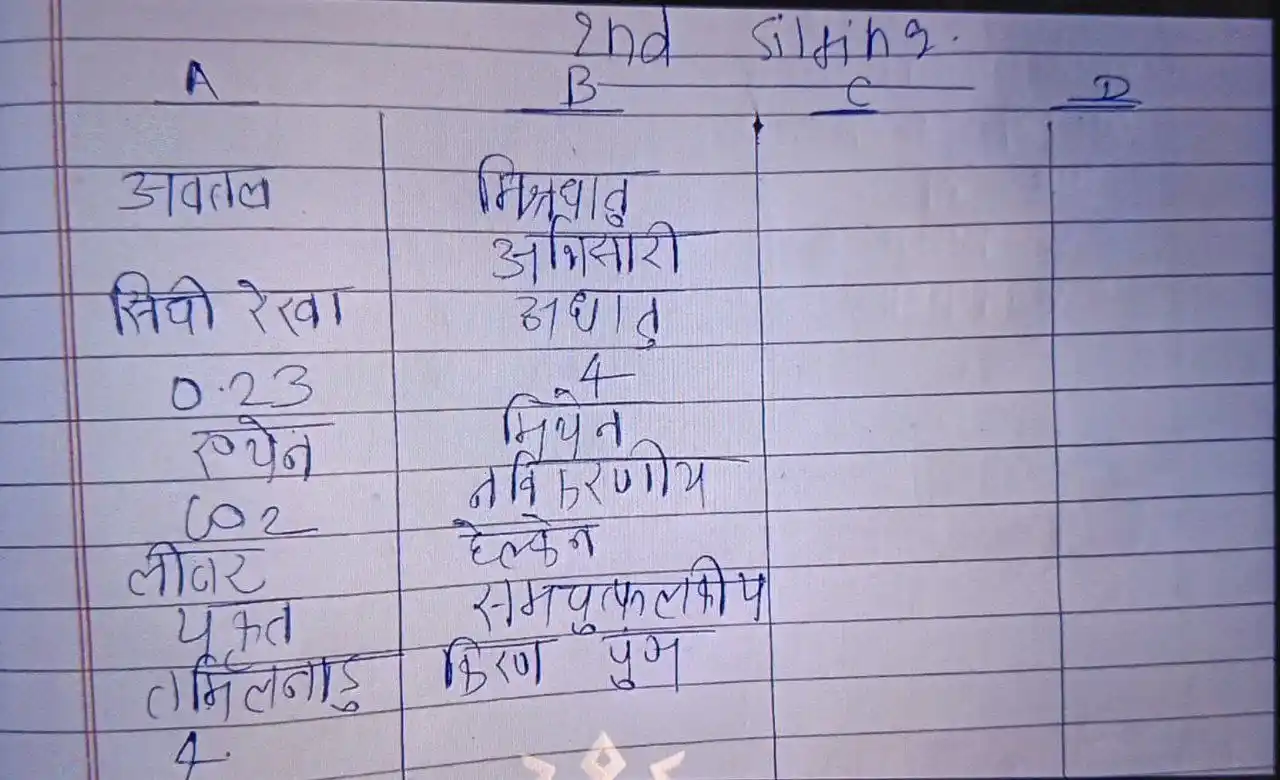 2nd Silting.
A B C D
अवतल मिश्रधातु
अभिसारी
सिधी रेखा अधातु
0.23 4
एथेन मिथेन
CO2 नविकरणीय
लीवर हेल्केन
यकृत समचतुष्फलकीय
तमिलनाडु किरण पुंज
4.